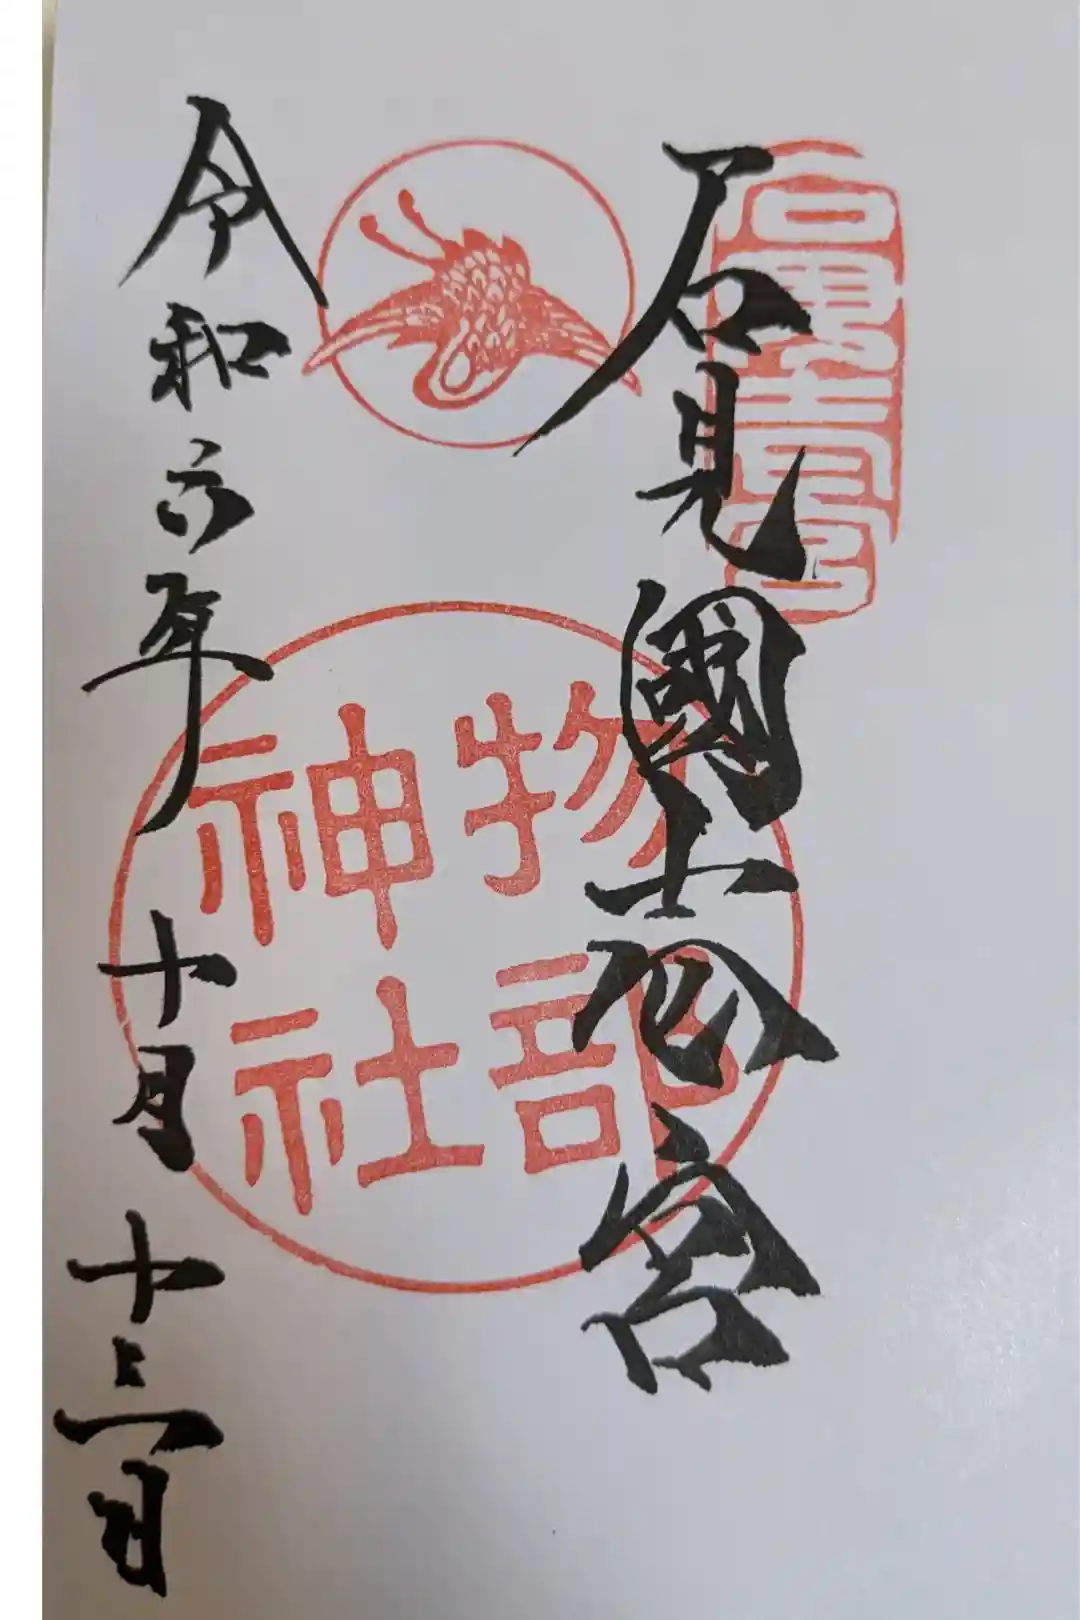 石見壱宮
石見國壱宮
物部
神社
令和六年十月十三日